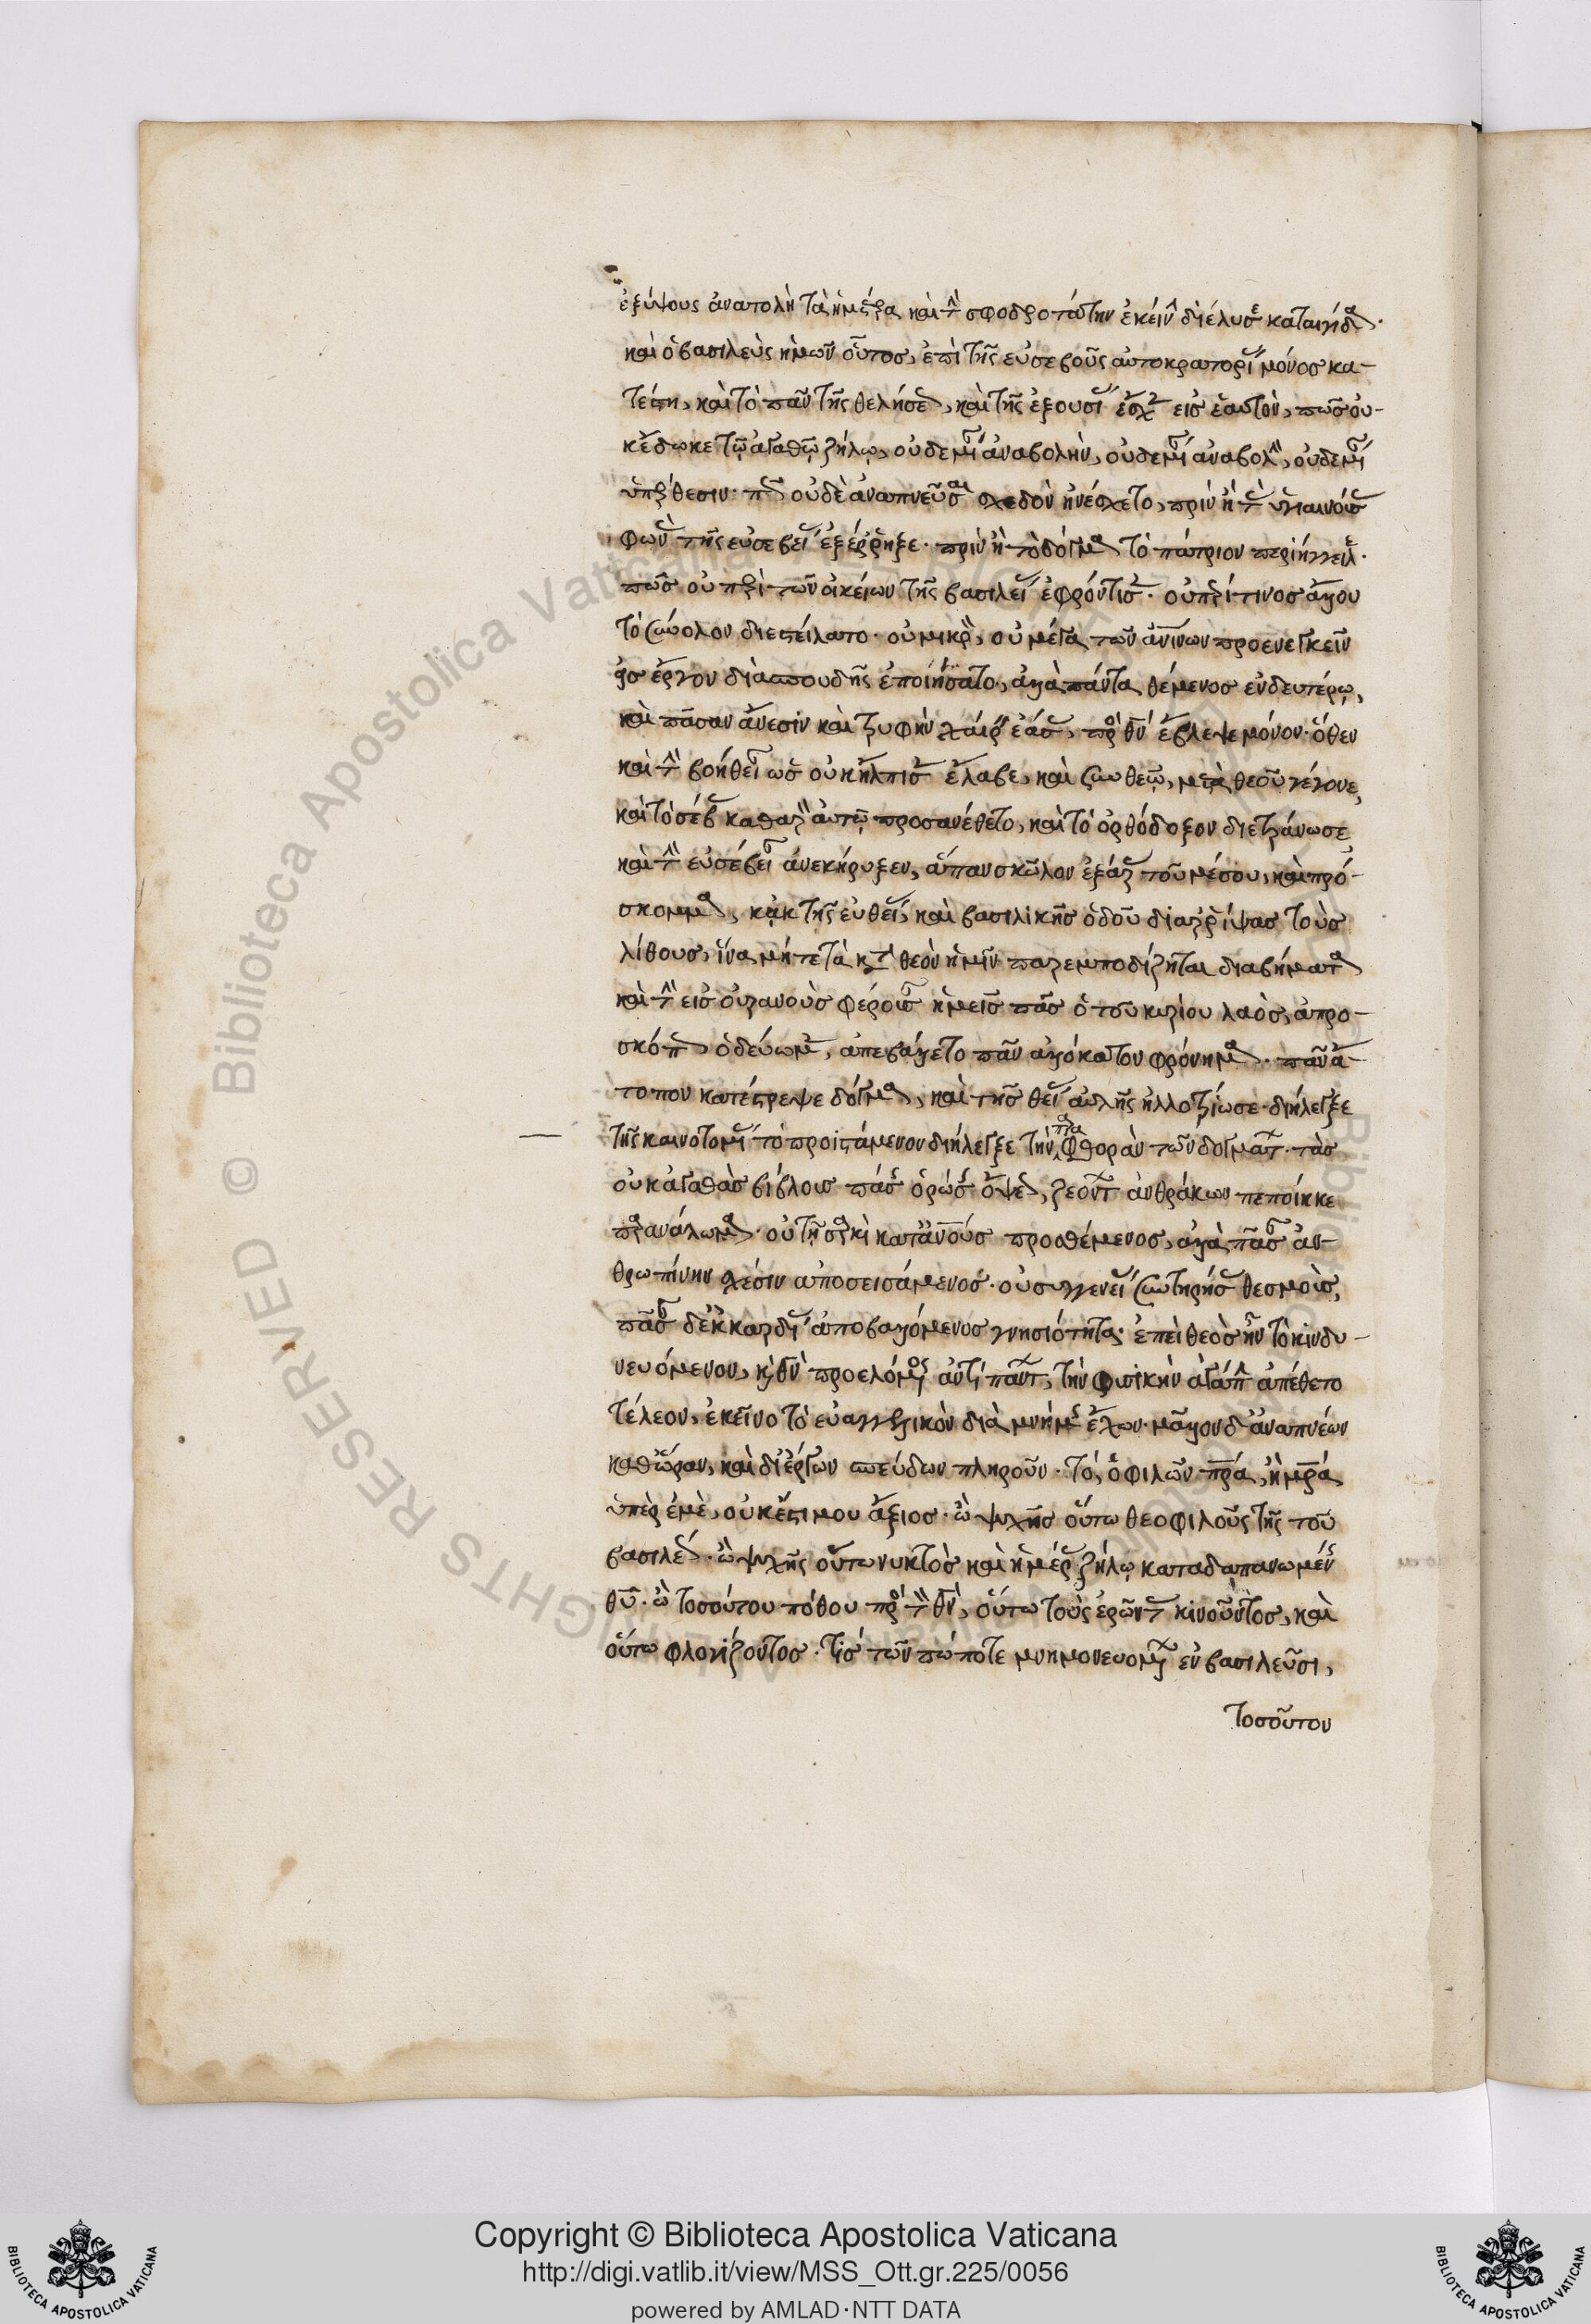 ἐξύψους ἀνατολὴ τὰ ἡμέτερα καὶ τὴν σφοδροτάτην ἐκείνην διέλυσε καταιγίδα.
καὶ ὁ βασιλεὺς ἡμῶν οὗτος, ἐπὶ τῆς εὐσεβοῦς αὐτοκρατορίας μόνος κα-
τέστη, καὶ τὸ πᾶν τῆς θελήσεως, καὶ τῆς ἐξουσίας ἔσχεν εἰς ἑαυτὸν, πῶς οὐ-
κ ἔδωκε τῷ ἀγαθῷ ζήλῳ, οὐδεμίαν ἀναβολὴν, οὐδεμίαν ἀναβολὴν, οὐδεμίαν
ὑπέρθεσιν· οὐδὲ ἀναπνεῦσαι σχεδὸν ἠνέσχετο, πρὶν ἢ τὰς ὑγιαινούσας
φωνὰς τῆς εὐσεβείας ἐξέρρηξε· πρὶν ἢ τὸ δόγμα τὸ πάτριον περιήγγειλε·
πῶς οὐ περὶ τῶν οἰκείων τῆς βασιλείας ἐφρόντισεν· οὐ περί τινος ἄλλου
τὸ σύνολον διεστείλατο· οὐ μικρὸν, οὐ μέγα τῶν ἀνθρωπίνων προενεγκεῖν
εἰς ἔργον διὰ σπουδῆς ἐποιήσατο, ἀλλὰ πάντα θέμενος ἐν δευτέρῳ,
καὶ πᾶσαν ἄνεσιν καὶ τρυφὴν χαίρειν ἐάσας, πρὸς θεὸν ἔβλεψε μόνον· ὅθεν
καὶ τὴν βοήθειαν ὡς οὐκ ἤλπισεν ἔλαβε, καὶ σὺν θεῷ, μετὰ θεοῦ γέγονε,
καὶ τὸ σέβας καθαρὸν αὐτῷ προσανέθετο, καὶ τὸ ὀρθόδοξον διετράνωσε
καὶ τὴν εὐσέβειαν ἀνεκήρυξεν, ἅπαν σκῶλον ἐξάρας τοῦ μέσου, καὶ πρό-
σκομμα, κἀκ τῆς εὐθείας καὶ βασιλικῆς ὁδοῦ διαρρίψας τοὺς
λίθους, ἵνα μήτε τὰ κατὰ θεὸν ἡμῖν παρεμποδίζηται διαβήματα
καὶ τὴν εἰς οὐρανοὺς φέρουσαν ἡμεῖς πᾶς ὁ τοῦ κυρίου λαὸς, ἀπρο-
σκόπως ὁδεύωμεν, ἀπεβάλλετο πᾶν ἀλλόκοτον φρόνημα. πᾶν ἄ-
τοπον κατέστρεψε δόγμα, καὶ τῆς θείας αὐλῆς ἠλλοτρίωσε· διήλεγξε
τῆς καινοτομίας τὸ προϊστάμενον διήλεγξε τὴν φθορὰν τῶν δογμάτων· τὰς
οὐκ ἀγαθὰς βίβλους πάσης ὁρώσης ὄψεως, ζεόντων ἀνθράκων πεποίηκε
παρανάλωμα· οὐ τῇ σαρκὶ κατ' ἀνθρώπους προσθέμενος, ἀλλὰ πᾶσαν ἀν-
θρωπίνην σχέσιν ἀποσεισάμενος· οὐ συγγενείας συντηρήσας θεσμοὺς,
πᾶσαν δ' ἐκ καρδίας ἀποβαλλόμενος γνησιότητα· ἐπεὶ θεὸς ἦν τὸ κινδυ-
νευόμενον, καὶ θεὸν προελόμενος ἀντὶ πάντων, τὴν φυσικὴν ἀγάπην ἀπέθετο
τέλεον, ἐκεῖνο τὸ εὐαγγελικὸν διὰ μνήμης ἔχων· μᾶλλον δ' ἀναπνέων
καθ' ὥραν, καὶ δι' ἔργων σπεύδων πληροῦν· τὸ, ὁ φιλῶν πατέρα, ἢ μητέρα
ὑπὲρ ἐμὲ, οὐκ ἔστι μου ἄξιος· ὢ ψυχῆς οὕτω θεοφιλοῦς τῆς τοῦ
βασιλέως· ὢ ψυχῆς οὕτω νυκτὸς καὶ ἡμέρας ζήλῳ καταδαπανωμένης
θεοῦ· ὢ τοσούτου πόθου πρὸς τὸν θεὸν, οὕτω τοὺς ἐρῶντας κινοῦντος, καὶ
οὕτω φλογίζοντος· τίς τῶν πώποτε μνημονευομένων ἐν βασιλεῦσι,
τοσοῦτον
Copyright © Biblioteca Apostolica Vaticana
http://digi.vatlib.it/view/MSS_Ott.gr.225/0056
powered by AMLAD·NTT DATA